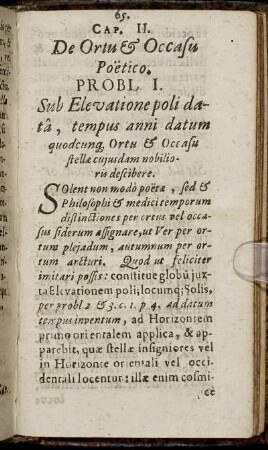 65.
CAP. II.
De Ortu & Occasu
Poëtico.
PROBL. I.
Sub Elevatione poli da-
tâ, tempus anni datum
quodcunq, Ortu & Occasu
stellæ cujusdam nobilio-
ris describere.
SOlent non modò poëtæ, sed &
Philosophi & medici temporum
distinctiones per ortus vel occa-
sus siderum assignare, ut Ver per or-
tum plejadum, autumnum per or-
tum arcturi. Quod ut feliciter
imitari possis: constitue globũ jux-
ta Elevationem poli, locumq; Solis,
per probl 2 & 3. c. 1. p. 4. ad datum
tempus inventum, ad Horizontem
primo orientalem applica, & ap-
parebit, quæ stellæ insigniores vel
in Horizonte orientali vel occi-
dentali locentur: illæ enim cosmi-
cè